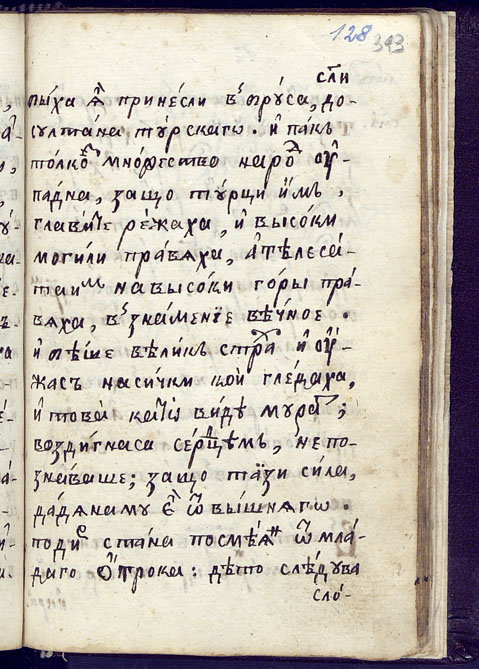 128 393
сли
пы́ха ѧ҆̀ прине́сли в̾ прꙋ́са, до-
султа́на тꙋ́рскагѡ. и҆ па́къ
то́лкоⷡ҇ мно́жество наро́ⷣ ᲂу҆-
па́дна, защо̀ тꙋ́рци и҆́мъ,
глави́те рѣ́жаха, и҆ высо́ки
моги́ли пра́вѧха, а҆ тѣ́леса-
таи́мъ на высо́ки го́ры пра́-
вѧха, в̾ зна́менїе вѣ́чное.
и҆ бѣ́ше вѣли́къ стра́ⷯ и҆ ᲂу҆́-
жасъ на си́чки кои́ глѣ́даха,
и҆ това̀ като̀ ви́дѣ мура́ⷮ;
воздигна са се́рцемъ, не по-
зна́ваше; защо̀ та́ѧзи си́ла,
да́дѧна му є҆̀ ѿ вы́шнѧгѡ.
поди́ⷬ ста́на посмѣ́ѧⷩ҇ ѿ мла́-
даго ѻ҆́трока: дѣ́то слѣ́дува
сло́-